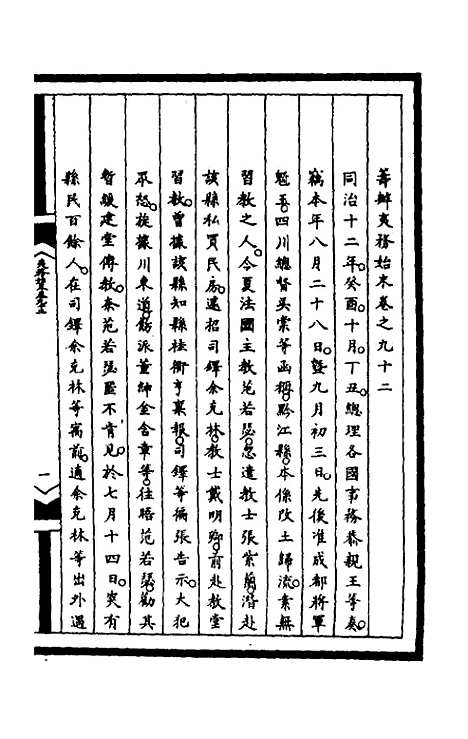 籌辦夷務始末卷之九十二
同治十二年。癸酉。十月。丁丑。總理各國事務恭親王等奏。
竊本年八月二十八日。暨九月初三日。先後准成都將軍
魁玉。四川總督吳棠等函稱。黔江縣。本係改土歸流。素無
習教之人。今夏法國主教范若瑟。忽遣教士張紫蘭。潛赴
該縣私買民房。遽招司鐸余克林。教士戴明卿。前赴教堂
習教。曾據該縣知縣桂衢亨稟報。司鐸等徧張告示。大犯
眾怒。旋據川東道。飭派董紳金含章等。往晤范若瑟。勸其
暫緩建堂傳教。奈范若瑟堅不肯見。於七月十四日。突有
縣民百餘人。在司鐸余克林等寓前。適余克林等出外遇
一